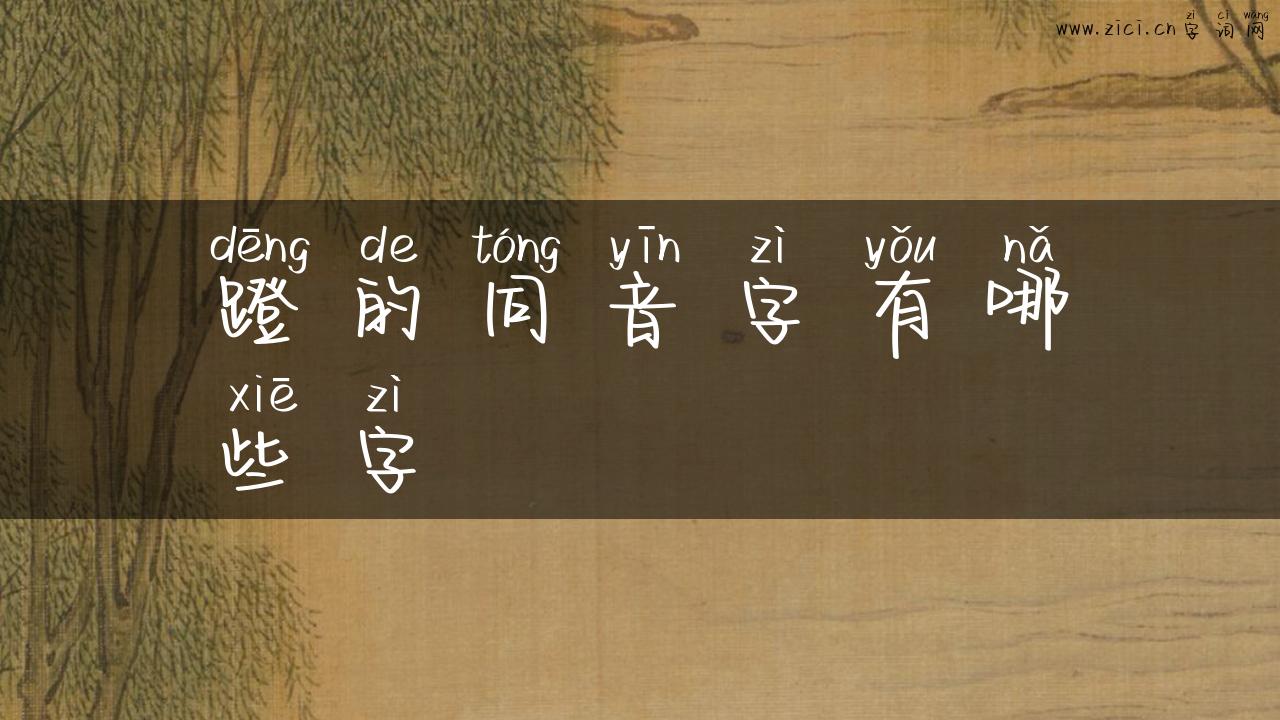 zì cí wǎng
www.zici.cn 字 词 网
dēng de tóng yīn zì yǒu nǎ
蹬 的 同 音 字 有 哪
xiē zì
些 字